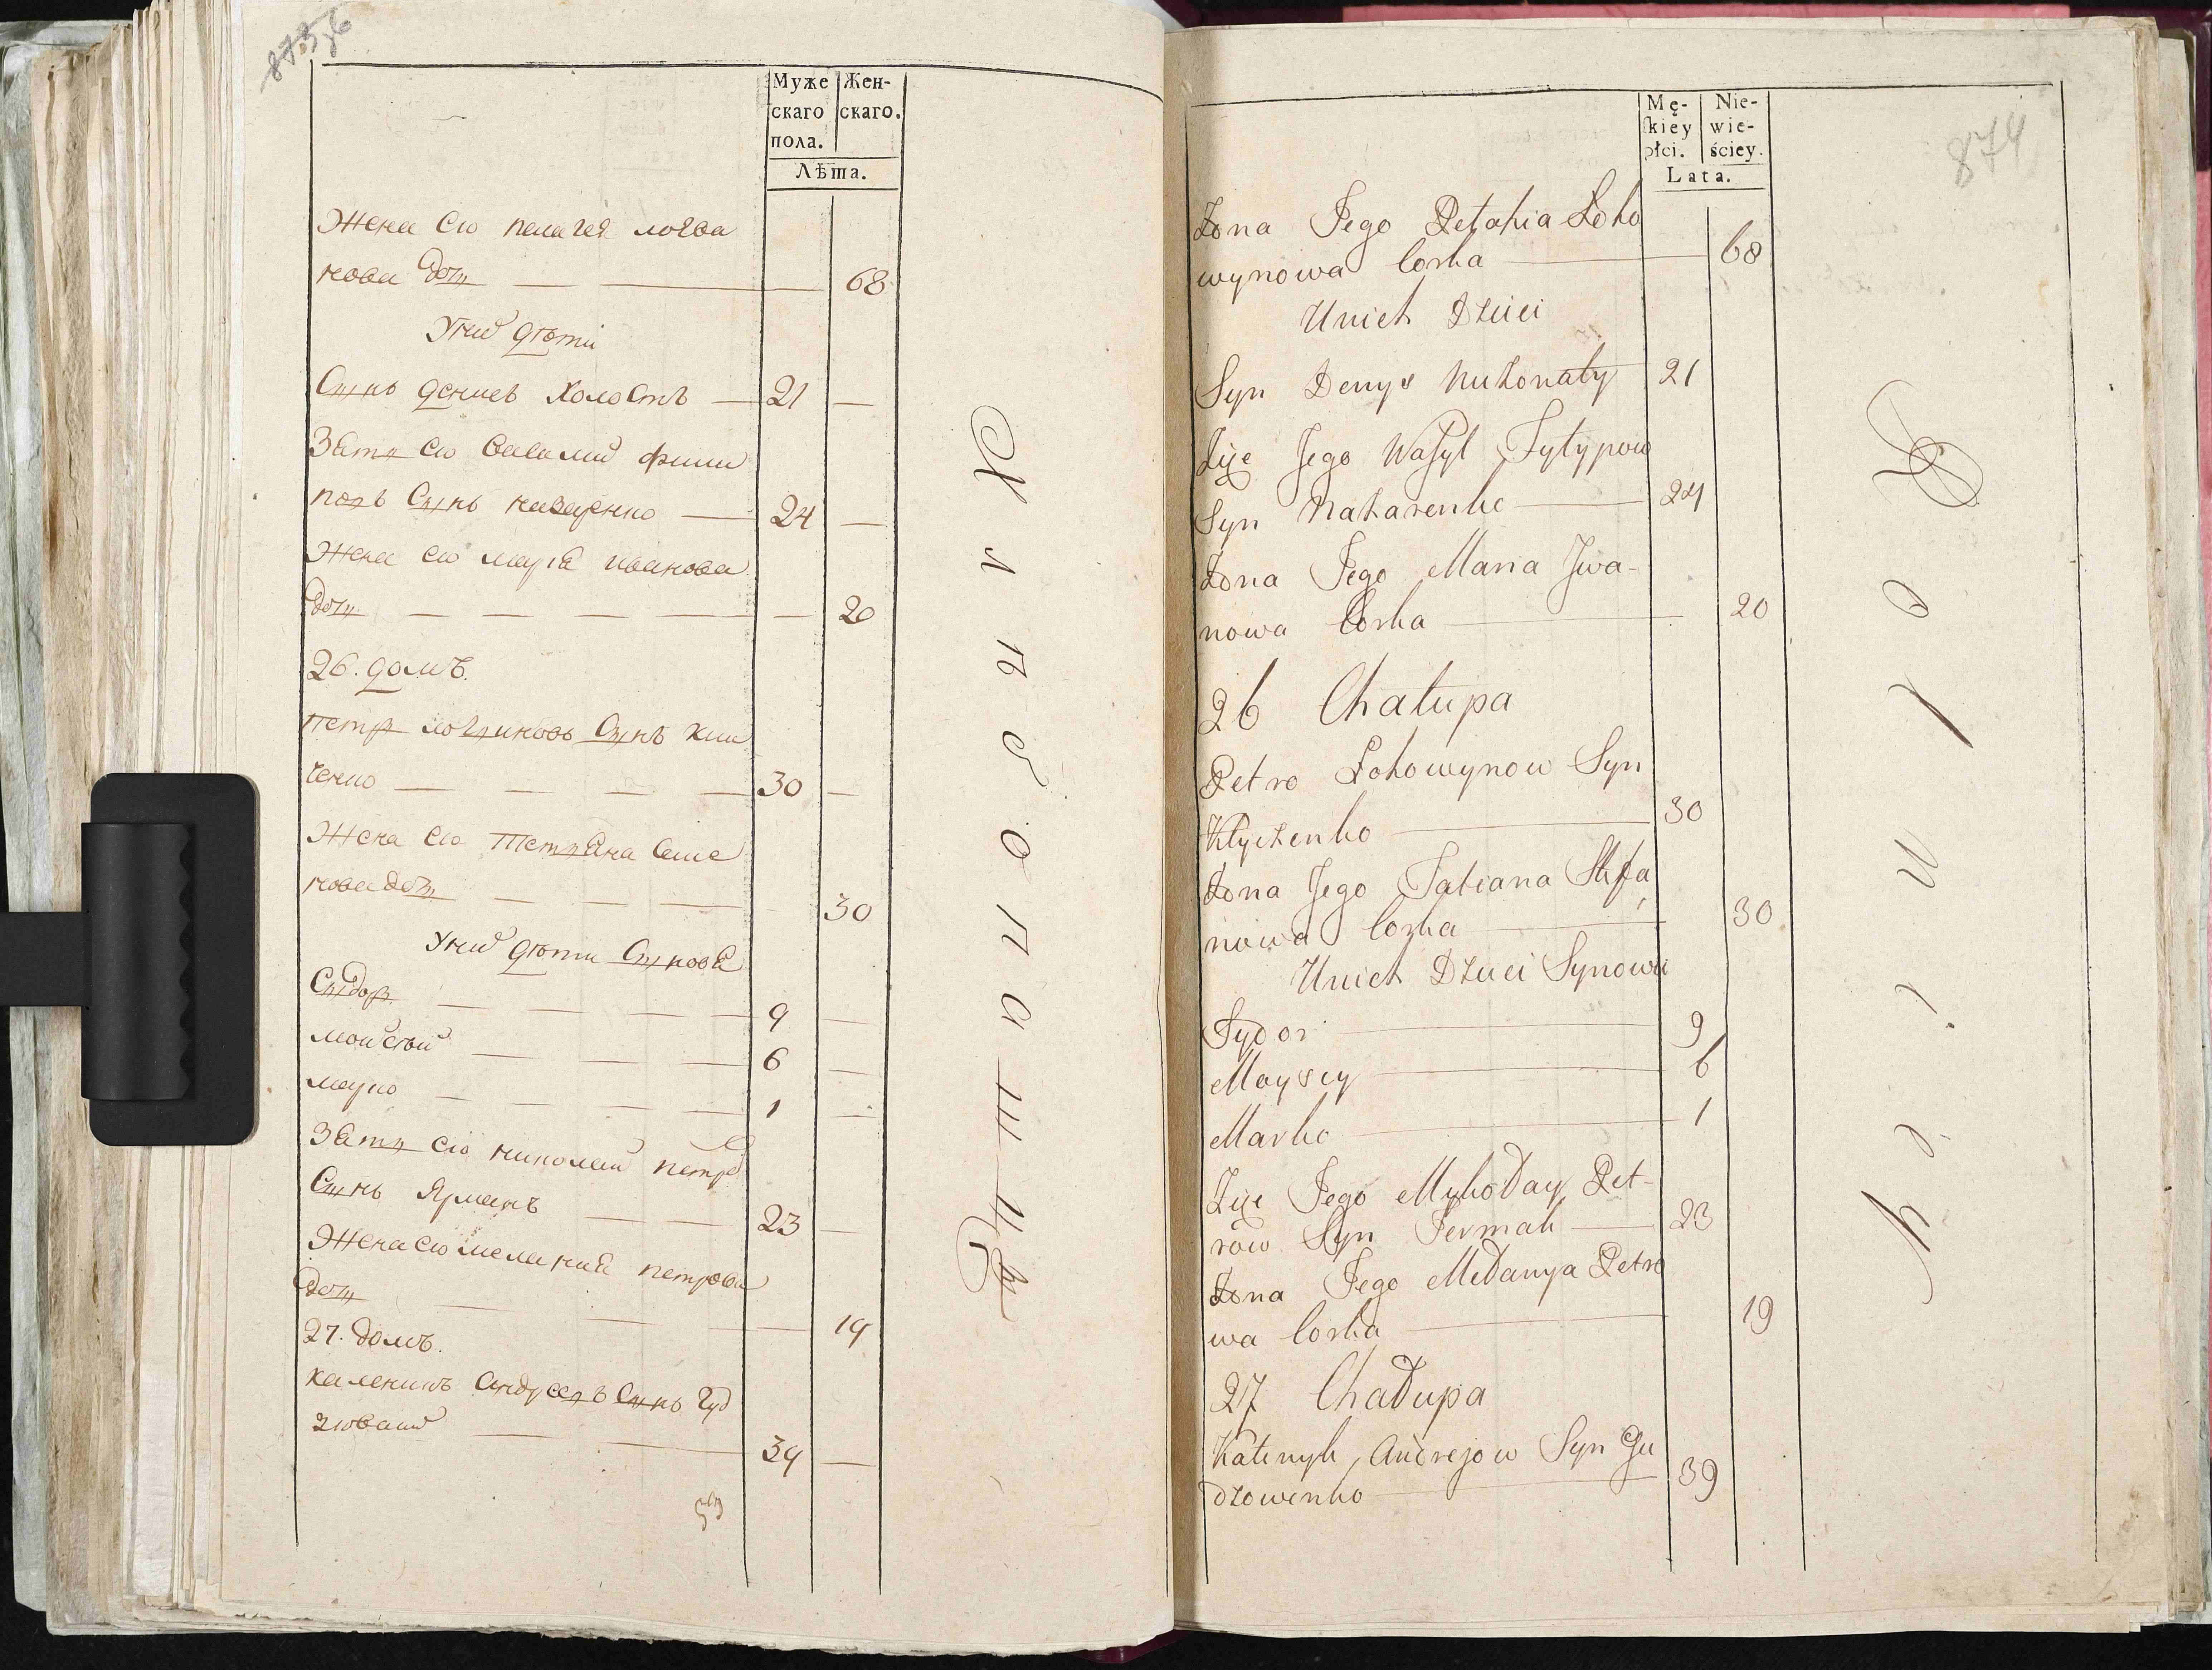 Муже
скаго
пола.
Жен-
скаго.
Лѣта.
Жена его пелагея логви
нова дочь 68
У них дѣти
Сынъ денисъ холостъ 21
Зять его василий фили
повъ Сынъ назаренко 24
Жена его мария иванова
дочь 20
26. домъ.
петръ логвиновъ Сынъ кли
ченко 30
Жена его Тетяна степа
нова дочь 30
У них дѣти Сыновя
Сыдоръ 9
мойсѣй 6
марко 1
Зять его николай петро
Сынъ Ярмакъ 23
Жена его мелания петрова
дочь 19
27. домъ.
каленикъ андреевъ Сынъ гуд
39
874
Mę-
skiey
płci.
Nie-
wie-
ściey.
Lata.
Żona Jego Pełahia Łoho
wynowa Corka 68
Unich Dzieci
Syn Denys Nieżonaty 21
Zięc Jego Wasyl Fylypow
Syn Nazarenko 24
Żona Jego Maria Jwa-
nowa Corka 20
26 Chałupa
Petro Łohowynow Syn
Klyczenko 30
Żona Jego Tatiana Stefa
nowa Corka 30
Unich Dzieci Synowie
Sydor 9
Moysey 6
Marko 1
Zięc Jego Mykołay Pet-
row Syn Jermak 23
Żona Jego Mełanya Petro
wa Corka 19
27 Chałupa
Kałenyk Andrejow Syn Gu
dzowenko 39